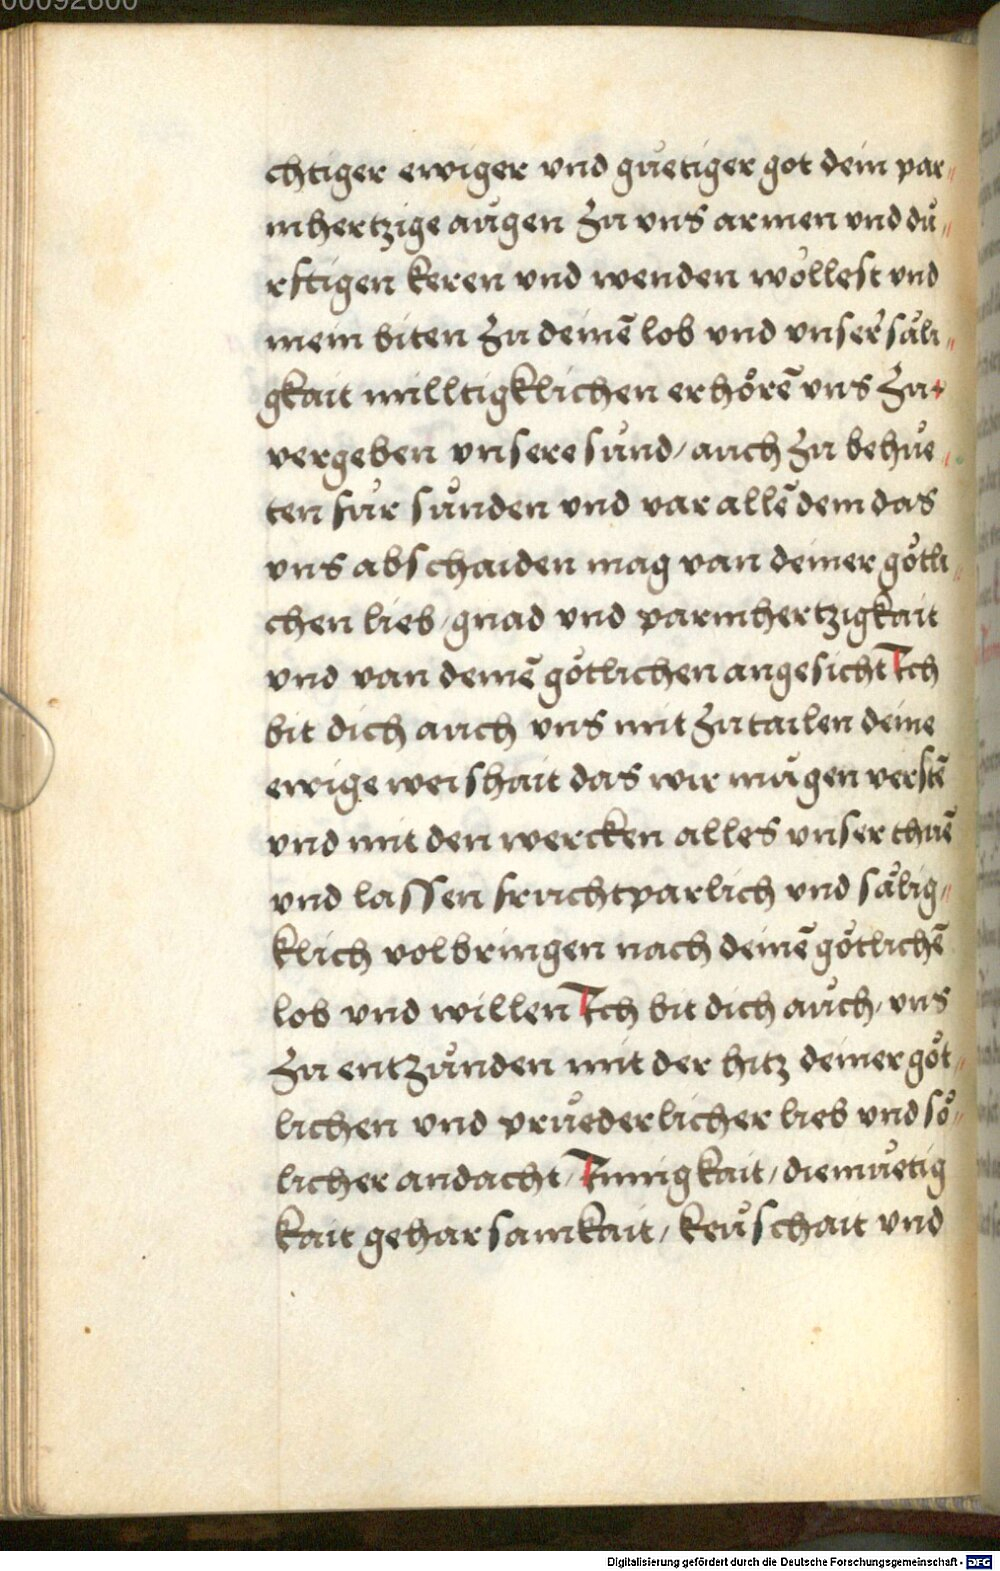 00092600
chtiger ewiger vnd guetiger got dein par„
mhertzige augen Zu vns armen vnd dů„
rftigen keren vnd wenden wöllest vnd
mein biten Zu deinē lob vnd vnser säli„
gkait milltigklichen erhörē vns Zu
vergeben vnsere sünd/ auch Zu behüe„
ten für sünden vnd var allē dem das
vns abschaiden mag van deiner götli„
chen lieb/ gnad vnd parmhertzigkait
vnd van deinē götlichen angesicht Ich
bit dich auch vns mit Zu tailen deine
ewige weishait das wir mügen verstē
vnd mit den wercken alles vnser thuē
vnd lassen fruchtparlich vnd sälig„
klich volbringen nach deinē götlichē
lob vnd willen Ich bit dich auch/ vns
Zu entZünden mit der hitz deiner göt„
lichen vnd prüederlicher lieb vnd sö„
licher andacht/ Innigkait/ diemüetig
kait geharsamkait/ keüschait vnd
Digitalisierung gefördert durch die Deutsche Forschungsgemeinschaft - DFG